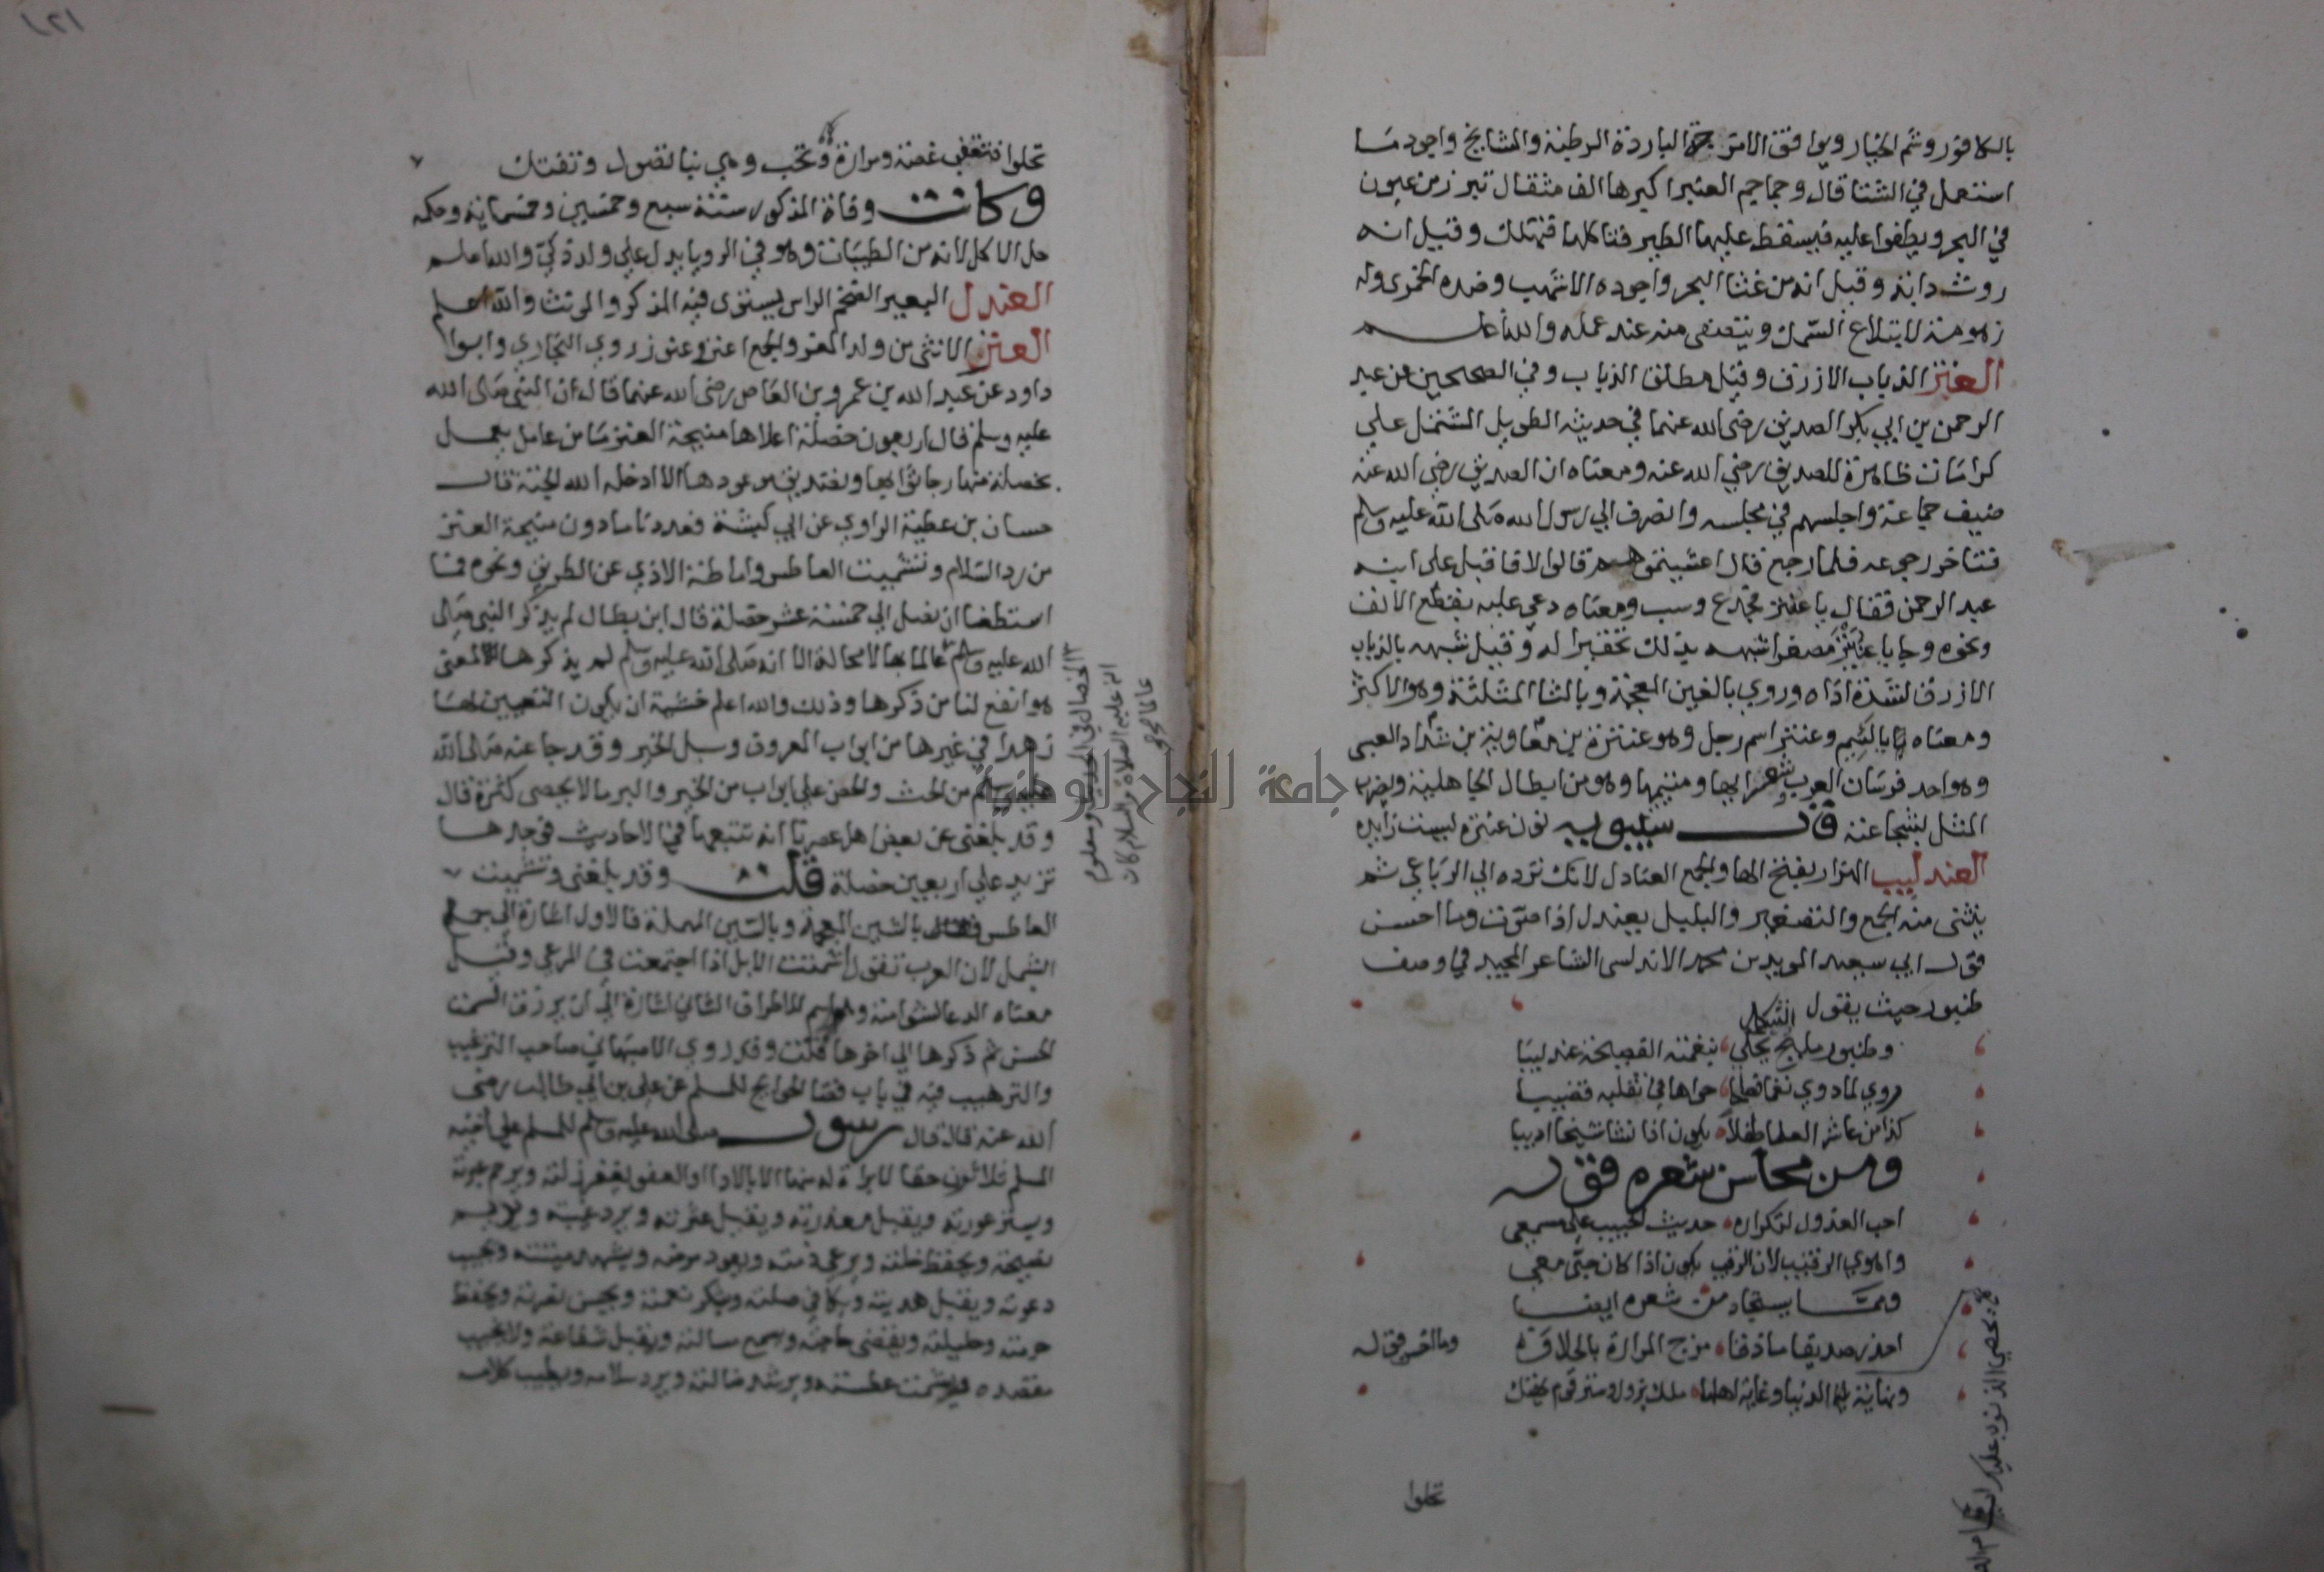 بالكافور وشم الخيار ويوافق الامزجة الباردة الرطبة والمشايخ واجود ما
استعمل في الشتا قال وجماجم العنبر اكبرها الف مثقال تبرز من عيون
في البحر ويطفوا عليه فيسقط عليها الطير فتاكلها فتهلك وقيل انه
روث دابة وقيل انه من غثا البحر واجوده الاشهب وضده الخمرى وله
زهومة لابتلاع السمك وينتفى منه عند عمله والله اعلم
العنتر الذباب الازرق وقيل مطلق الذباب وفي الصحيحين عن عبد
الرحمن بن ابي بكر الصديق رضى الله عنهما في حديثه الطويل المشتمل على
كرامات ظاهرة للصديق رضي الله عنه ومعناه ان الصديق رضي الله عنه
ضيف جماعة واجلسهم في مجلسه وانصرف الي رسول الله صلى الله عليه وسلم
فتاخر رجوعه فلما رجع قال اعشيتموهم قالوا لا فاقبل على ابنه
عبد الرحمن فقال يا عنتر فجدع وسب ومعناه دعى عليه بقطع الانف
ونحوه وجا يا عنيتر مصغرا شبهه بذلك تحقيرا له وقيل شبهه بالذباب
الازرق لشدة اذاه وروي بالغين المعجمة وبالثا المثلثة وهو الاكثر
ومعناه يا لئيم وعنتر اسم رجل وهو عنترة بن معاوية بن شداد العبسى
وهو احد فرسان العرب شعرايها ومتيميها وهو من ابطال الجاهلية ويضرب
المثل بشجاعته قال سيبويه نون عنترة ليست زايدة
العندليب الهزار بفتح الها والجمع العنادل لانك ترده الي الرباعي ثم
يثنى منه الجمع والتصغير والبلبل يعندل اذا صوت وما احسن
قول ابي سعيد المويد بن محمد الاندلسى الشاعر المجيد في وصف
طنبور حيث يقول
وطنبور مليح الشكل يحكي بنغمته الفصيحة عندليبا
روي لما دوي نغما فصاحا حواها في تقلبه قضيبا
كذا من عاشر العلما طفلا يكون اذا نشا شيخا اديبا
ومن محاسن شعره قوله
احب العذول لتكراره حديث الحبيب على مسمعى
واهوي الرقيب لان الرقيب يكون اذا كان حبى معى
ومما يستجاد من شعره ايضا
احذر صديقا ماذقا مزج المرارة بالحلاوة
وما احسن قوله
ونهاية الدنيا وغاية اهلها ملك يزول وستر قوم يهتك
تحلوا
تحلوا فتعقب غصة ومرارة وتحب وهي بنا تصول وتفتك
وكانت وفاة المذكور سنة سبع وخمسين وخمسماية وحكمه
حل الاكل لانه من الطيبات وهو في الرويا يدل على ولد ذكي والله اعلم
العندل البعير الضخم الراس يستوى فيه المذكر والمونث والله اعلم
العنز الانثى من ولد المعز والجمع اعنز وعنوز روي البخاري وابوا
داود عن عبد الله بن عمرو بن العاص رضى الله عنهما قال ان النبي صلى الله
عليه وسلم قال اربعون خصلة اعلاها منيحة العنز ما من عامل يعمل
بخصلة منها رجا ثوابها وتصديق موعودها الا ادخله الله الجنة قال
حسان بن عطية الراوي عن ابي كبشة فعددنا ما دون منيحة العنز
من رد السلام وتشميت العاطس واماطة الاذي عن الطريق ونحوه فما
استطعنا ان نصل الي خمسة عشر خصلة قال ابن بطال لم يذكر النبي صلى
الله عليه وسلم عالما بها لا محالة الا انه صلى الله عليه وسلم لم يذكرها لمعنى
هو انفع لنا من ذكرها وذلك والله اعلم خشية ان يكون التعيين لها
زهدا في غيرها من ابواب المعروف وسبل الخير وقد جا عنه صلى الله
عليه وسلم من الحث والحض على ابواب من الخير والبر ما لا يحصى كثرة قال
وقد بلغنى عن بعض اهل عصرنا انه تتبعها في الاحاديث فوجدها
تزيد على اربعين خصلة قلت وقد بلغنى وتشميت
العاطس بالشين المعجمة وبالسين المهملة فالاول اشارة الي جمع
الشمل لان العرب تقول اشمتت الابل اذا اجتمعت في المرعي وقيل
معناه الدعا لشوامته وهو اسم للاطراف الثاني اشارة الي ان يرزق السمت
الحسن ثم ذكرها الي اخرها قلت وقد روي الاصبهاني صاحب الترغيب
والترهيب فيه في باب قضا الحوايج للمسلم عن على بن ابي طالب رضى
الله عنه قال قال رسول صلى الله عليه وسلم للمسلم على اخيه
المسلم ثلاثون حقا لا براة له منها الا بالادا او العفو يغفر زلته ويرحم عبرته
ويستر عورته ويقبل معذرته ويقيل عثرته ويرد غيبته ويديم
نصيحته ويحفظ خلته ويرعى ذمته ويعود مرضه ويشهد ميتته ويجيب
دعوته ويقبل هديته ويكافي صلته ويشكر نعمته ويحسن نصرته ويحفظ
حرمته وحليلته ويقضى حاجته ويسمع سالته ويقبل شفاعته ولا يخيب
مقصده ويشمت عطسته ويرشد ضالته ويرد سلامه ويطيب كلامه
جامعة النجاح الوطنية